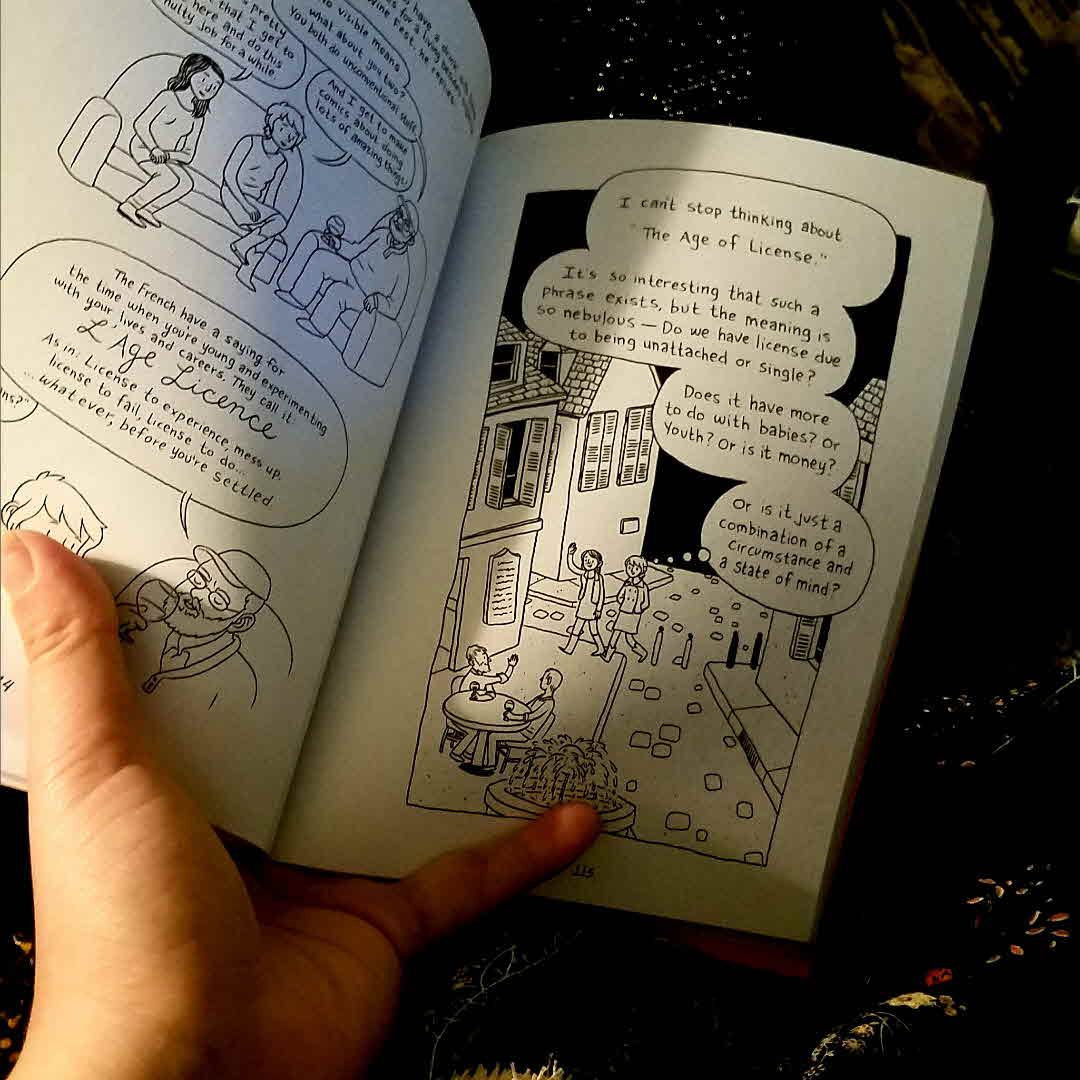 pretty
that I get to
here and do this
nutty job for a while.
have a
for a living
wine Fest, he
no visible means
what about you two?
You both do unconventional stuff.
And I get to make
comics about doing
lots of amazing things!
The French have a saying for
the time when you're young and experimenting
with your lives and careers. They call it:
L'Age Licence
As in: License to experience, mess up,
license to fail, license to do...
...whatever, before you're settled.
I can't stop thinking about
"The Age of License."
It's so interesting that such a
phrase exists, but the meaning is
so nebulous — Do we have license due
to being unattached or single?
Does it have more
to do with babies? Or
Youth? Or is it money?
Or is it just a
combination of a
circumstance and
a state of mind?
115